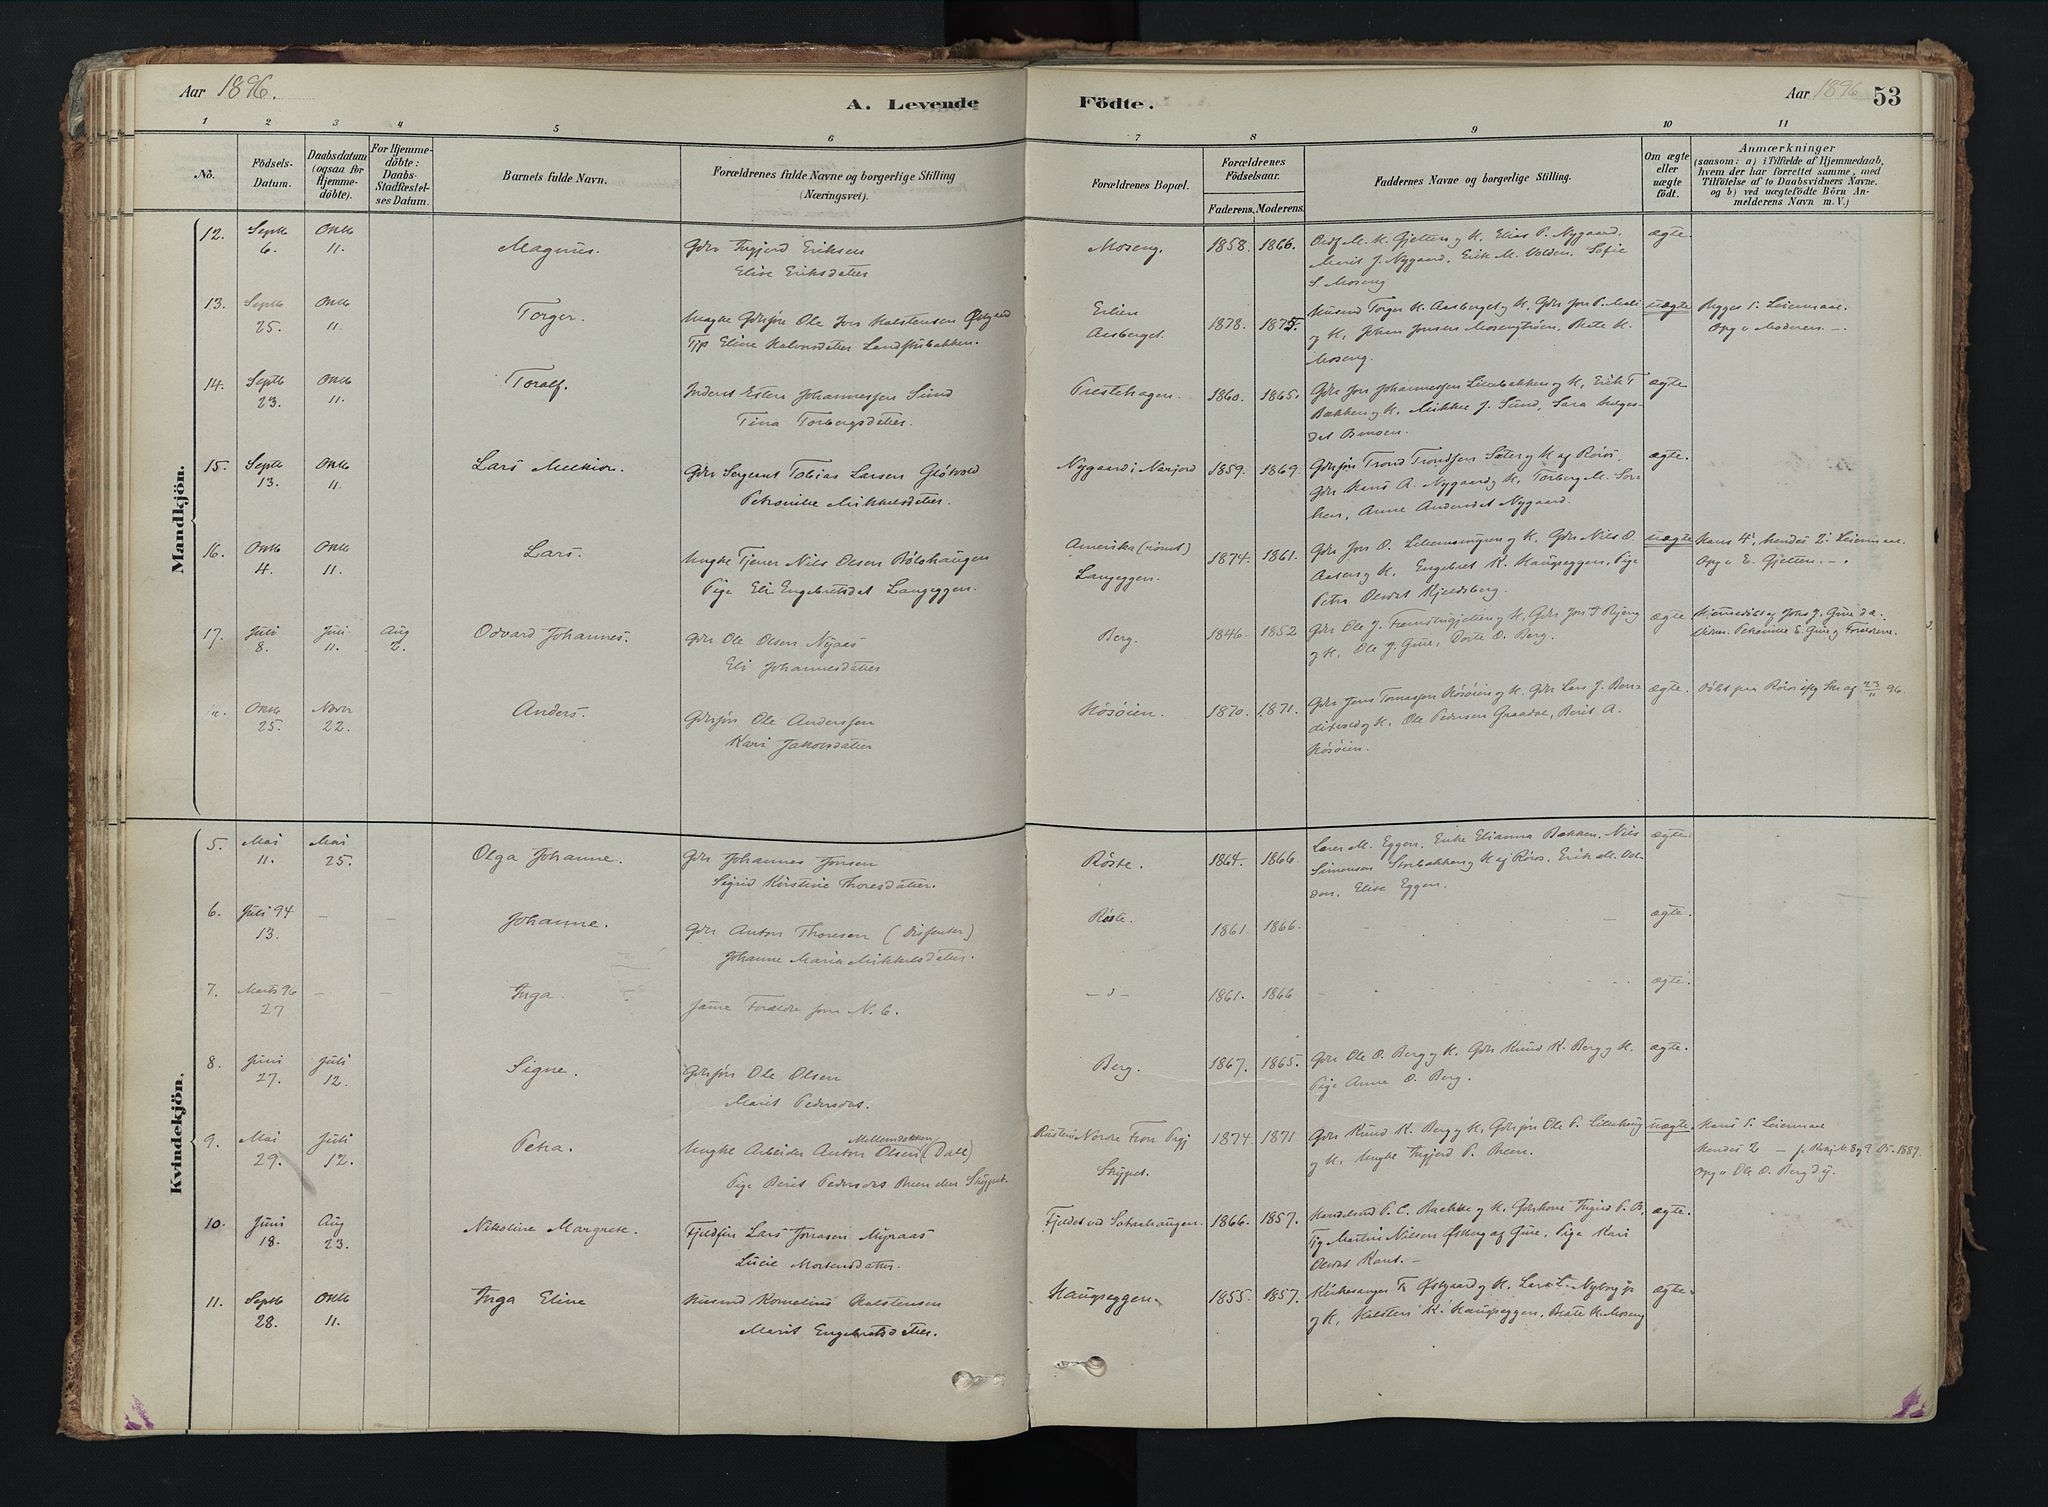 Aar 1896.
A. Levende Födte.
Aar 1896
53
1 2 3 4 5 6 7 8 9 10 11
No.
Födsels-Datum.
Daabsdatum (ogsaa for Hjemmedöbte).
For Hjemmedöbte: Daabs-Stadfæstelses Datum.
Barnets fulde Navn.
Forældrenes fulde Navne og borgerlige Stilling (Næringsvei).
Forældrenes Bopæl.
Forældrenes Födselsaar.
Faderens. Moderens.
Faddernes Navne og borgerlige Stilling.
Om ægte eller uægte födt.
Anmærkninger
(saasom: a) i Tilfælde af Hjemmedaab, hvem der har forrettet samme, med Tilföielse af to Daabsvidners Navne. og b) ved uægtefödte Börn Anmelderens Navn m. V.)
Mandkjön.
12. Septb 6. Oktb 11. Magnus. Gdbr Ingjerd Eriksen
Elise Eriksdatter
Moseng. 1858. 1866. M. K. Gjelten og K. Elias P. Nygaard,
Marit J. Nygaard, Erik M. Volden, Sofie
S. Moseng
ægte.
13. Septb 25. Oktb 11. Torger. Ungke Gdbrsøn Ole Halstensen Østgaard
Eline Halvorsdatter
Aasberget. 1878. 1875. Husmd Torger K. Aasberget og K.
og K. Johan Jonsen Mosengtrøen, Beate K.
Moseng.
uægte Begges 1. Leiermaal.
Opg. Moderen
14. Septb 23. Oktb 11. Toralf. Inderst Esten Johannessen Sund
Tina Torbergsdatter.
Prestehagen. 1860. 1865. Gdbr Jon Johannessen Lillebakken og K, Erik T
Bakken og K, Mikkel J. Sund, Sara
ægte
15. Septb 13. Oktb 11. Lars Melkior. Gdbr Sergeant Tobias Larsen Gløtvold
Petronille Mikkelsdatter.
Nygaard i Narjord 1859. 1869. Gdbrsøn Trond Trondsen Sæter og K af Røros,
Gdbr Hans A. Nygaard og K, Torberg M.
Anne Andersdat Nygaard.
ægte.
16. Oktb 4. Oktb 11. Lars. Ungke Tjener Nils Olsen Bølohaugen
Pige Eli Engebretsdat Langeggen.
Amerika (rømt)
Langeggen. 1874. 1861. Gdbr Jon O. og K. Gdbr Nils O.
Aasen og K. Engebret K. Haugseggen, Pige
Petra Olsdat Kjeldsberg.
uægte Hans 4', hendes 2' Leiermaal.
Opg. E. Gjelten.
17. Juli 8. Juli 11. Aug 2. Odvard Johannes. Gdbr Ole Olsen Nyaas
Eli Johannesdatter
Berg. 1846. 1852 Gdbr Ole J. og K, Gdbr Jon
og K, Ole J. Dorte O. Berg.
ægte Hjemmedøbt af Johs J.
Petronille E. og Forældrene.
Oktb 25. Novbr 22. Anders. Gdbrsøn Ole Anderssen
Kari Jakobsdatter
Høsøien. 1870. 1871. Gdbr Jens Tomassen Høsøien og K. Gdbr Lars J.
og K. Ole Pedersen Graadal, Berit A.
Høsøien.
ægte. Døbt paa Røros 23/11 96.
Kvindekjön.
5. Mai 11. Mai 25. Olga Johanne. Gdbr Johannes Jonsen
Sigrid Kirstine Thoresdatter.
Røste. 1864. 1866. Lars M. Eggen, Enke Elianna Bakken, Nils
Simensen Storbakken og K af Røros, Erik M. Vol-
den, Elise Eggen.
ægte.
6. Juli 94 13. – – Johanne. Gdbr Anton Thoresen (Dissenter)
Johanne Maria Mikkelsdatter.
Røste. 1861. 1866. ægte.
7. Marts 96 27 – – Inga. Samme Forældre som N. 6.
–"– 1861. 1866 ægte.
8. Juni 27. Juli 12. Signe. Gdbrsøn Ole Olsen
Marit Pedersdat.
Berg. 1867. 1865. Gdbr Ole O. Berg og K. Gdbr Knud K. Berg og K.
Pige Anne O. Berg.
ægte.
9. Mai 29. Juli 12. Petra. Ungke Arbeider Anton Olsen (Dale)
Pige Berit Pedersdat Skjypet.
Nordre Fron
Skjypet. 1874. 1871 Gdbr Knud K. Berg og K. Gdbrsøn Ole P.
og K, Ungke Ingjerd P.
uægte. Hans 1. Leiermaal
Hendes 2 1889.
Opg. Ole O. Berg
10. Juni 18. Aug 23. Nikoline Margrete. Lars Jonasen Myraas
Lucie Mortensdatter.
Fjeldet ved 1866. 1857. P. C. Bakke og K. Gdbrkone Ingrid P. B,
Martin Nilsen Østberg af Pige Kari
Olsdat
ægte.
11. Septb 28. Oktb 11. Inga Eline Husmd Kornelius Halstensen
Marit Engebretsdatter.
Haugseggen. 1855. 1857. Kirkesanger Østgaard og K. Lars L.
og K, Halsten K. Haugseggen, Beate K. Moseng
ægte.